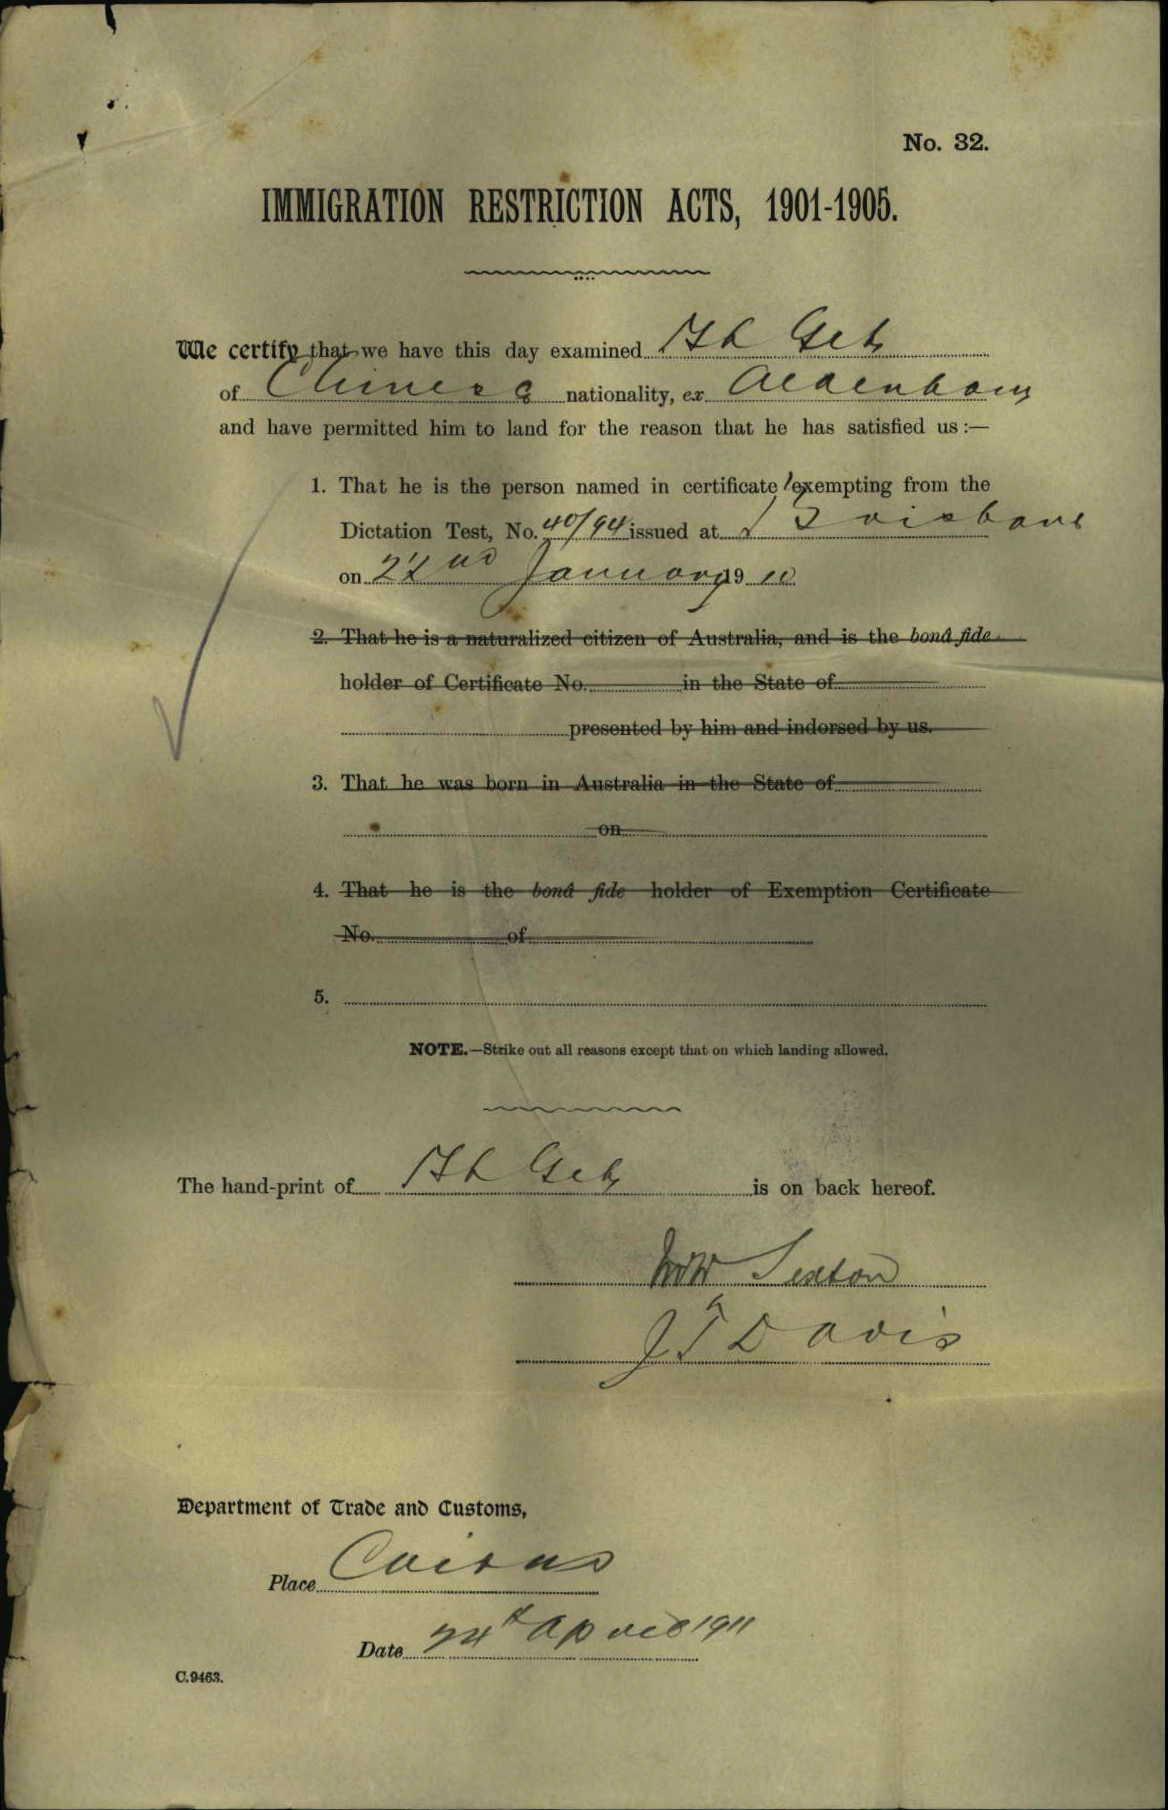 No. 32.
IMMIGRATION RESTRICTION ACTS, 1901-1905.
We certify that we have this day examined Ah Geh
of Chinese nationality, ex Aldenham
and have permitted him to land for the reason that he has satisfied us :—
1. That he is the person named in certificate exempting from the
Dictation Test, No. 40/94 issued at Brisbane
on 22nd January 1910
2. That he is a naturalized citizen of Australia, and is the bonâ fide
holder of Certificate No. in the State of
presented by him and indorsed by us.
3. That he was born in Australia in the State of
on
4. That he is the bonâ fide holder of Exemption Certificate
No. of
5.
NOTE.—Strike out all reasons except that on which landing allowed.
The hand-print of Ah Geh is on back hereof.
Sexton
J T Davis
Department of Trade and Customs,
Place Cairns
Date 24th April 1911
C.9463.